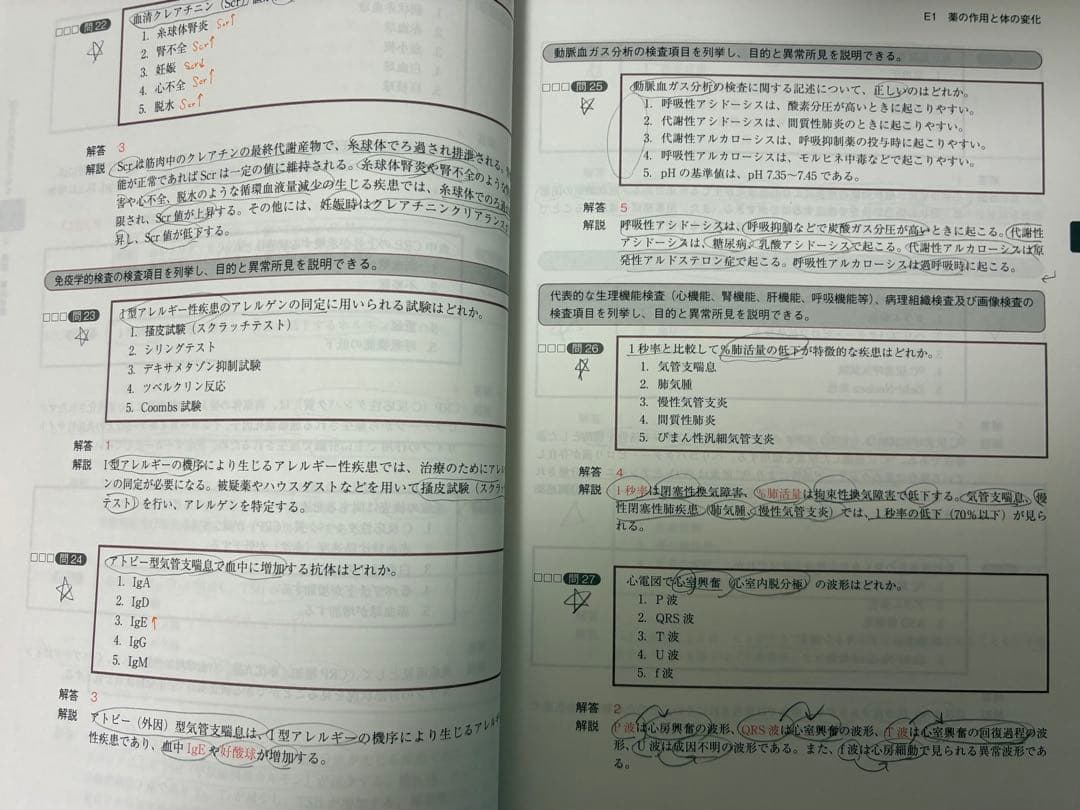 問22
血清クレアチニン(Scr)値
1. 糸球体腎炎 Scr↑
2. 腎不全 Scr↑
3. 妊娠 Scr↓
4. 心不全 Scr↑
5. 脱水 Scr↑
解答 3
解説 Scrは筋肉中のクレアチンの最終代謝産物で、糸球体でろ過され排泄される。
能が正常であればScrは一定の値に維持される。糸球体腎炎や腎不全のような
害や心不全、脱水のような循環血液量減少の生じる疾患では、糸球体でのろ過
限され、Scr値が上昇する。その他には、妊娠時はクレアチニンクリアランス
昇し、Scr値が低下する。
免疫学的検査の検査項目を列挙し、目的と異常所見を説明できる。
問23
I型アレルギー性疾患のアレルゲンの同定に用いられる試験はどれか。
1. 掻皮試験(スクラッチテスト)
2. シリングテスト
3. デキサメタゾン抑制試験
4. ツベルクリン反応
5. Coombs試験
解答 1
解説 I型アレルギーの機序により生じるアレルギー性疾患では、治療のためにアレル
ンの同定が必要になる。被疑薬やハウスダストなどを用いて掻皮試験(スクラッ
テスト)を行い、アレルゲンを特定する。
問24
アトピー型気管支喘息で血中に増加する抗体はどれか。
1. IgA
2. IgD
3. IgE↑
4. IgG
5. IgM
解答 3
解説 アトピー(外因)型気管支喘息は、I型アレルギーの機序により生じるアレル
性疾患であり、血中IgEや好酸球が増加する。
E1 薬の作用と体の変化
動脈血ガス分析の検査項目を列挙し、目的と異常所見を説明できる。
問25
動脈血ガス分析の検査に関する記述について、正しいのはどれか。
1. 呼吸性アシドーシスは、酸素分圧が高いときに起こりやすい。
2. 代謝性アシドーシスは、間質性肺炎のときに起こりやすい。
3. 代謝性アルカローシスは、呼吸抑制薬の投与時に起こりやすい。
4. 呼吸性アルカローシスは、モルヒネ中毒などで起こりやすい。
5. pHの基準値は、pH 7.35〜7.45である。
解答 5
解説 呼吸性アシドーシスは、呼吸抑制などで炭酸ガス分圧が高いときに起こる。代謝性
アシドーシスは、糖尿病、乳酸アシドーシスで起こる。代謝性アルカローシスは原
発性アルドステロン症で起こる。呼吸性アルカローシスは過呼吸時に起こる。
代表的な生理機能検査(心機能、腎機能、肝機能、呼吸機能等)、病理組織検査及び画像検査の
検査項目を列挙し、目的と異常所見を説明できる。
問26
1秒率と比較して%肺活量の低下が特徴的な疾患はどれか。
1. 気管支喘息
2. 肺気腫
3. 慢性気管支炎
4. 間質性肺炎
5. びまん性汎細気管支炎
解答 4
解説 1秒率は閉塞性換気障害、%肺活量は拘束性換気障害で低下する。気管支喘息、慢
性閉塞性肺疾患(肺気腫、慢性気管支炎)では、1秒率の低下(70%以下)が見ら
れる。
問27
心電図で心室興奮(心室内脱分極)の波形はどれか。
1. P波
2. QRS波
3. T波
4. U波
5. f波
解答 2
解説 P波は心房興奮の波形、QRS波は心室興奮の波形、T波は心室興奮の回復過程の波
形、U波は成因不明の波形である。また、f波は心房細動で見られる異常波形であ
る。